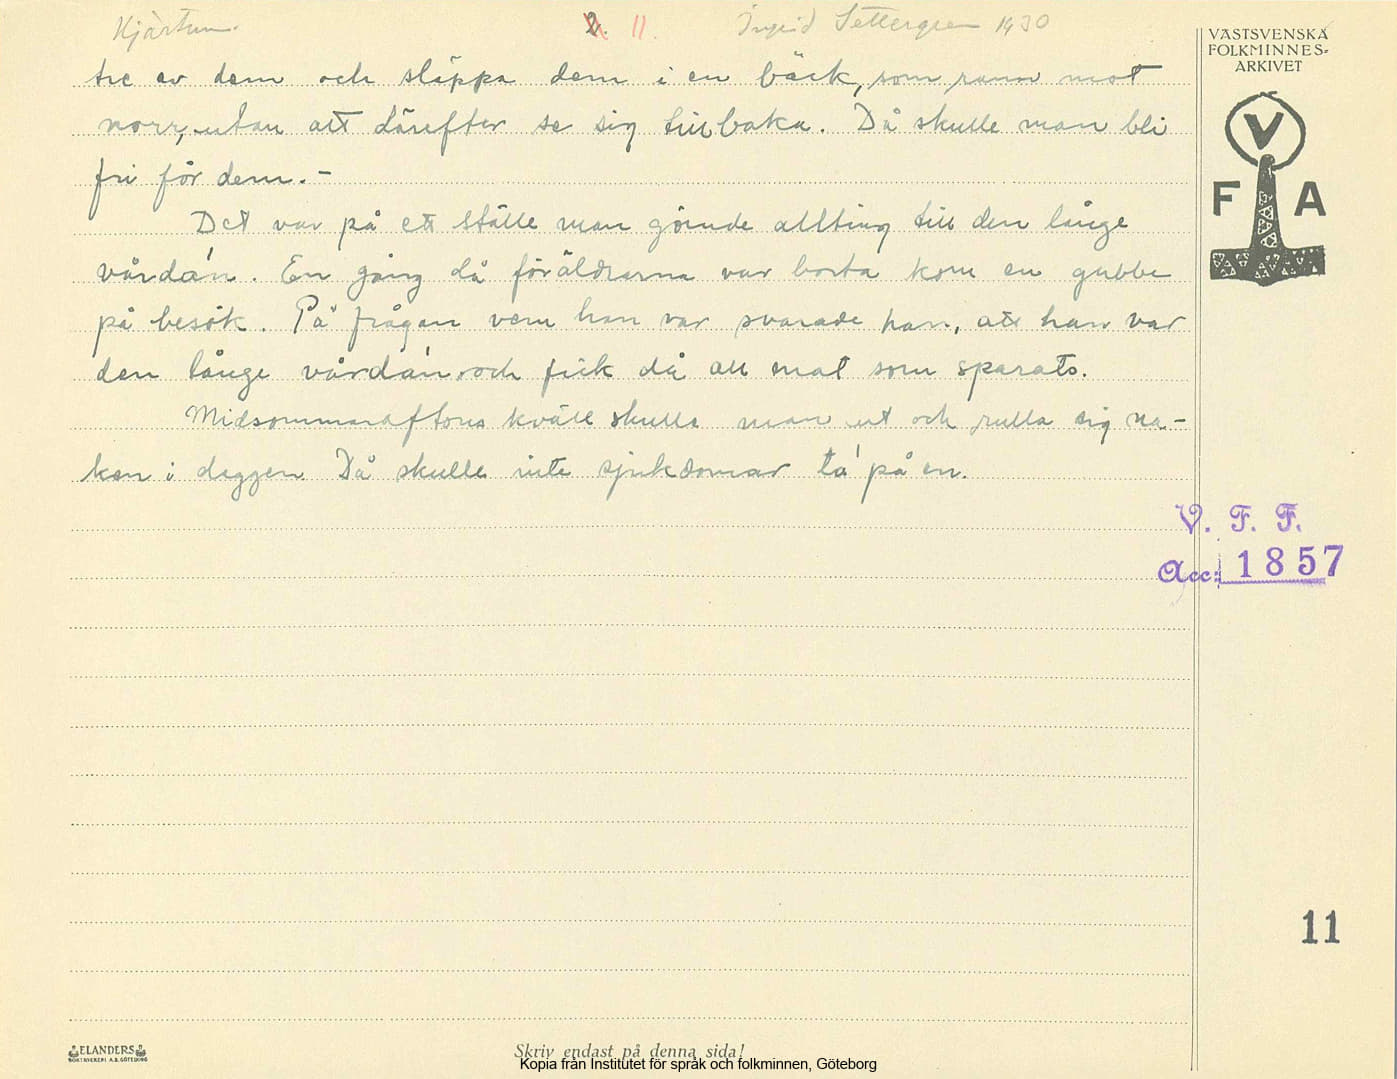 Hjärtum. 2. 11. Ingrid Settergren 1930
VÄSTSVENSKA
FOLKMINNES-
ARKIVET
tre av dem och släppa dem i en bäck, som rann mot
norr, utan att därefter se sig tillbaka. Då skulle man bli
fri för dem. -
Det var på ett ställe man gömde allting till den långe
vårda'n. En gång då föräldrarna var borta kom en gubbe
på besök. På frågan vem han var svarade han, att han var
den långe vårda'n och fick då all mat som sparats.
Midsommaraftons kväll skulle man ut och rulla sig na-
ken i daggen. Då skulle inte sjukdomar ta' på en.
V
F A
V. F. F.
Acc: 1857
11
ELANDERS
BOKTRYCKERI A.B. GÖTEBORG
Skriv endast på denna sida!
Kopia från Institutet för språk och folkminnen, Göteborg